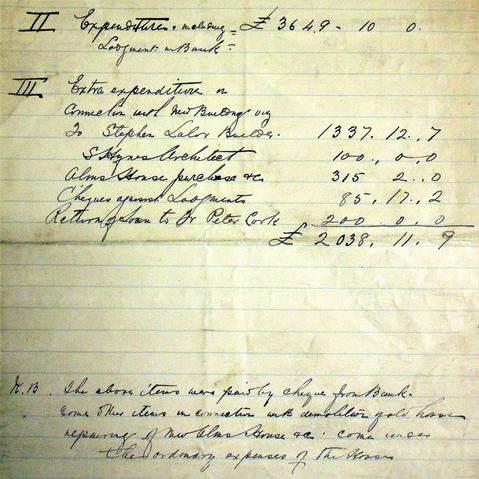 II Expenditure, including = £ 3649 - 10 0.
Lodgment in Bank =
III Extra expenditure in
Connection with New Building viz
To Stephen Lalor Builder. 1337. 12., 7
S Hynes Architect 100., 0, 0
Alms House purchase &c 315 2.. 0
Cheques against Lodgments 85, 17., 2
Return of Loan to Fr Peter Cork 200 0. 0
£ 2038, 11. 9
N.B. The above items were paid by cheque from Bank.
Some other items in connection with demolition of old house
repairing of New Alms House &c. come under
the ordinary expenses of the House